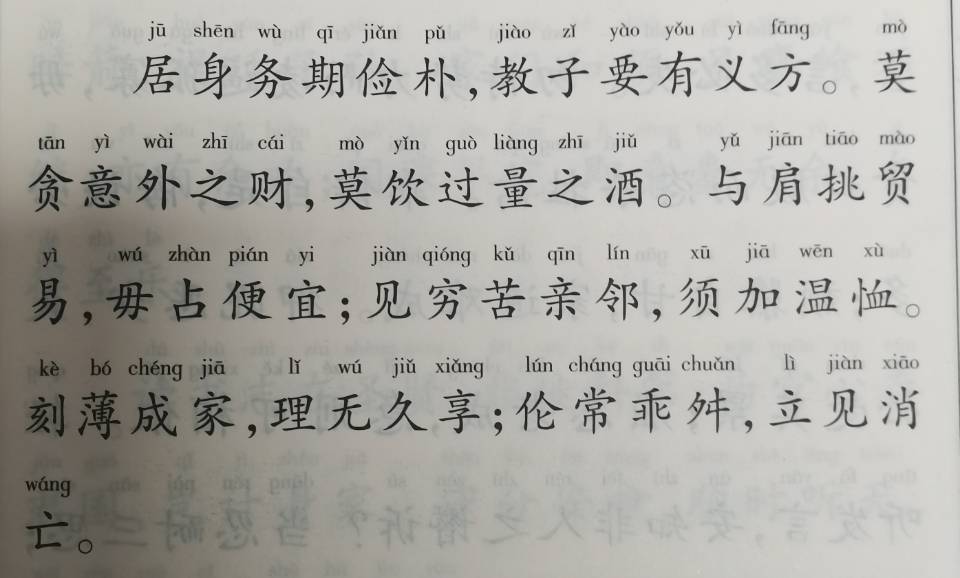 jū shēn wù qī jiǎn pǔ jiào zǐ yào yǒu yì fāng mò
居身务期俭朴,教子要有义方。莫
tān yì wài zhī cái mò yǐn guò liàng zhī jiǔ yǔ jiān tiāo mào
贪意外之财,莫饮过量之酒。与肩挑贸
yì wú zhàn pián yi jiàn qióng kǔ qīn lín xū jiā wēn xù
易,毋占便宜;见穷苦亲邻,须加温恤。
kè bó chéng jiā lǐ wú jiǔ xiǎng lún cháng guāi chuǎn lì jiàn xiāo
刻薄成家,理无久享;伦常乖舛,立见消
wáng
亡。